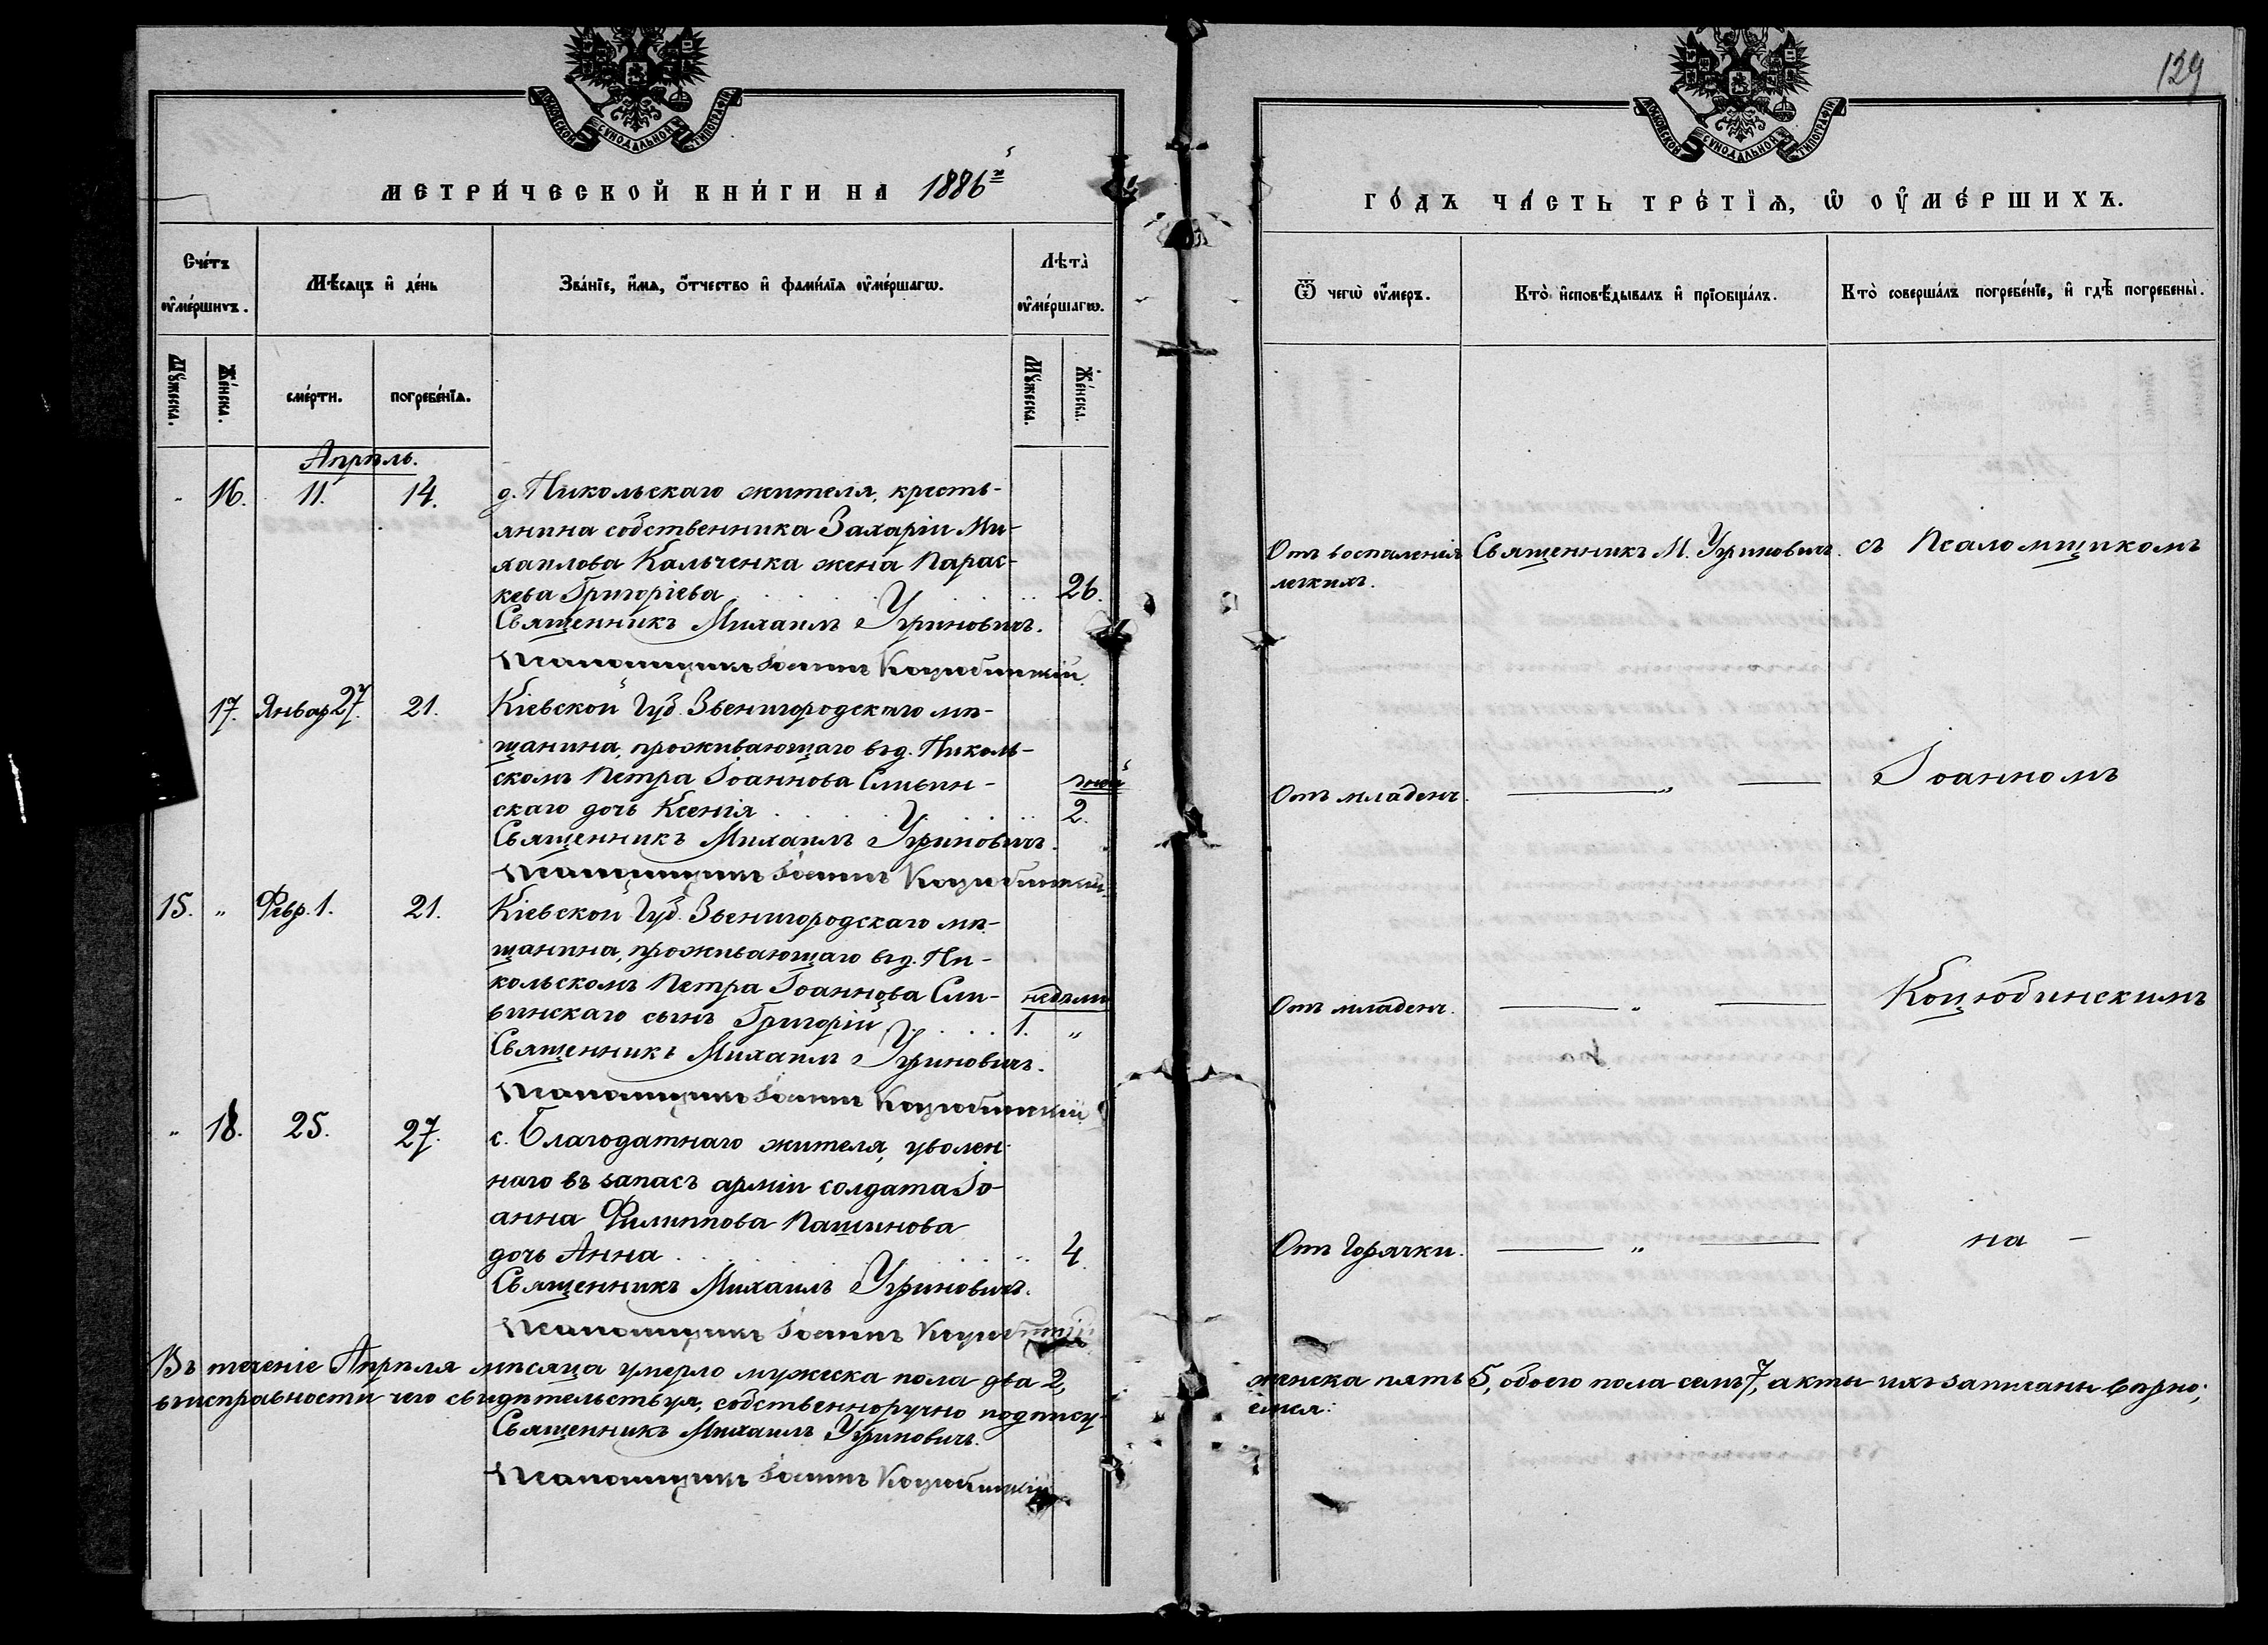 129
МОСКОВСКОЙ СѴНОДАЛЬНОЙ ТИПОГРАФІИ
МОСКОВСКОЙ СѴНОДАЛЬНОЙ ТИПОГРАФІИ
МЕТРИ́ЧЕСКОЙ КНИ́ГИ НА 1886й
ГО́ДЪ ЧА́СТЬ ТРЕ́ТЇѦ, Ѡ ОУ҆МЕ́РШИХЪ.
Сче́тъ оу҆ме́ршихъ.
Мѣ́сяцъ и҆ де́нь
Зва́нїе, и҆́мѧ, ѻ҆́тчество и҆ фами́лїѧ оу҆ме́ршагѡ.
Лѣта̀ оу҆ме́ршагѡ.
Ѿ чегѡ̀ оу҆́меръ.
Кто̀ и҆сповѣ́дывалъ и҆ прїобща́лъ.
Кто̀ соверша́лъ погребе́нїе, и҆ гдѣ̀ погребены̀.
Мꙋ́жеска.
Же́нска.
сме́рти.
погребе́нїѧ.
Мꙋ́жеска.
Же́нска.
Апрѣль.
" 16. 11. 14. д. Никольскаго жителя, кресть-
янина собственника Захаріи Ми-
хаилова Кальченка жена Парас-
кева Григоріева 26.
Священникъ Михаилъ Угриновичъ.
Псаломщикъ Іоаннъ Коцюбинскій.
Отъ воспаленія
легкихъ.
Священникъ М. Угриновичъ.
съ Псаломщикомъ
17. Январ 27. 21. Кіевской Губ. Звенигородскаго мѣ-
щанина, проживающаго въ д. Николь-
скомъ Петра Іоаннова Сливин-
дней
скаго дочь Ксенія 2.
Священникъ Михаилъ Угриновичъ.
Псаломщикъ Іоаннъ Коцюбинскій.
Отъ младенч. — " — Іоанномъ
15. " Февр. 1. 21. Кіевской Губ. Звенигородскаго мѣ-
щанина, проживающаго въ д. Ни-
кольскомъ Петра Іоаннова Сли-
недѣли
винскаго сынъ Григорій 1. "
Священникъ Михаилъ Угриновичъ.
Псаломщикъ Іоаннъ Коцюбинскій
Отъ младенч. — " — Коцюбинскимъ
" 18. 25. 27. с. Благодатнаго жителя, уволен-
наго въ запасъ арміи солдата Іо-
анна Филиппова Пашинова
дочь Анна 4.
Священникъ Михаилъ Угриновичъ.
Псаломщикъ Іоаннъ Коцюбинскій
Отъ Горячки. — " — на -
Въ теченіе Апрѣля мѣсяца умерло мужеска пола два 2, женска пять 5, обоего пола семь 7, акты ихъ записаны вѣрно;
въ исправности чего свидѣтельствуя, собственноручно подпису-
емся:
Священникъ Михаилъ Угриновичъ.
Псаломщикъ Іоаннъ Коцюбинскій